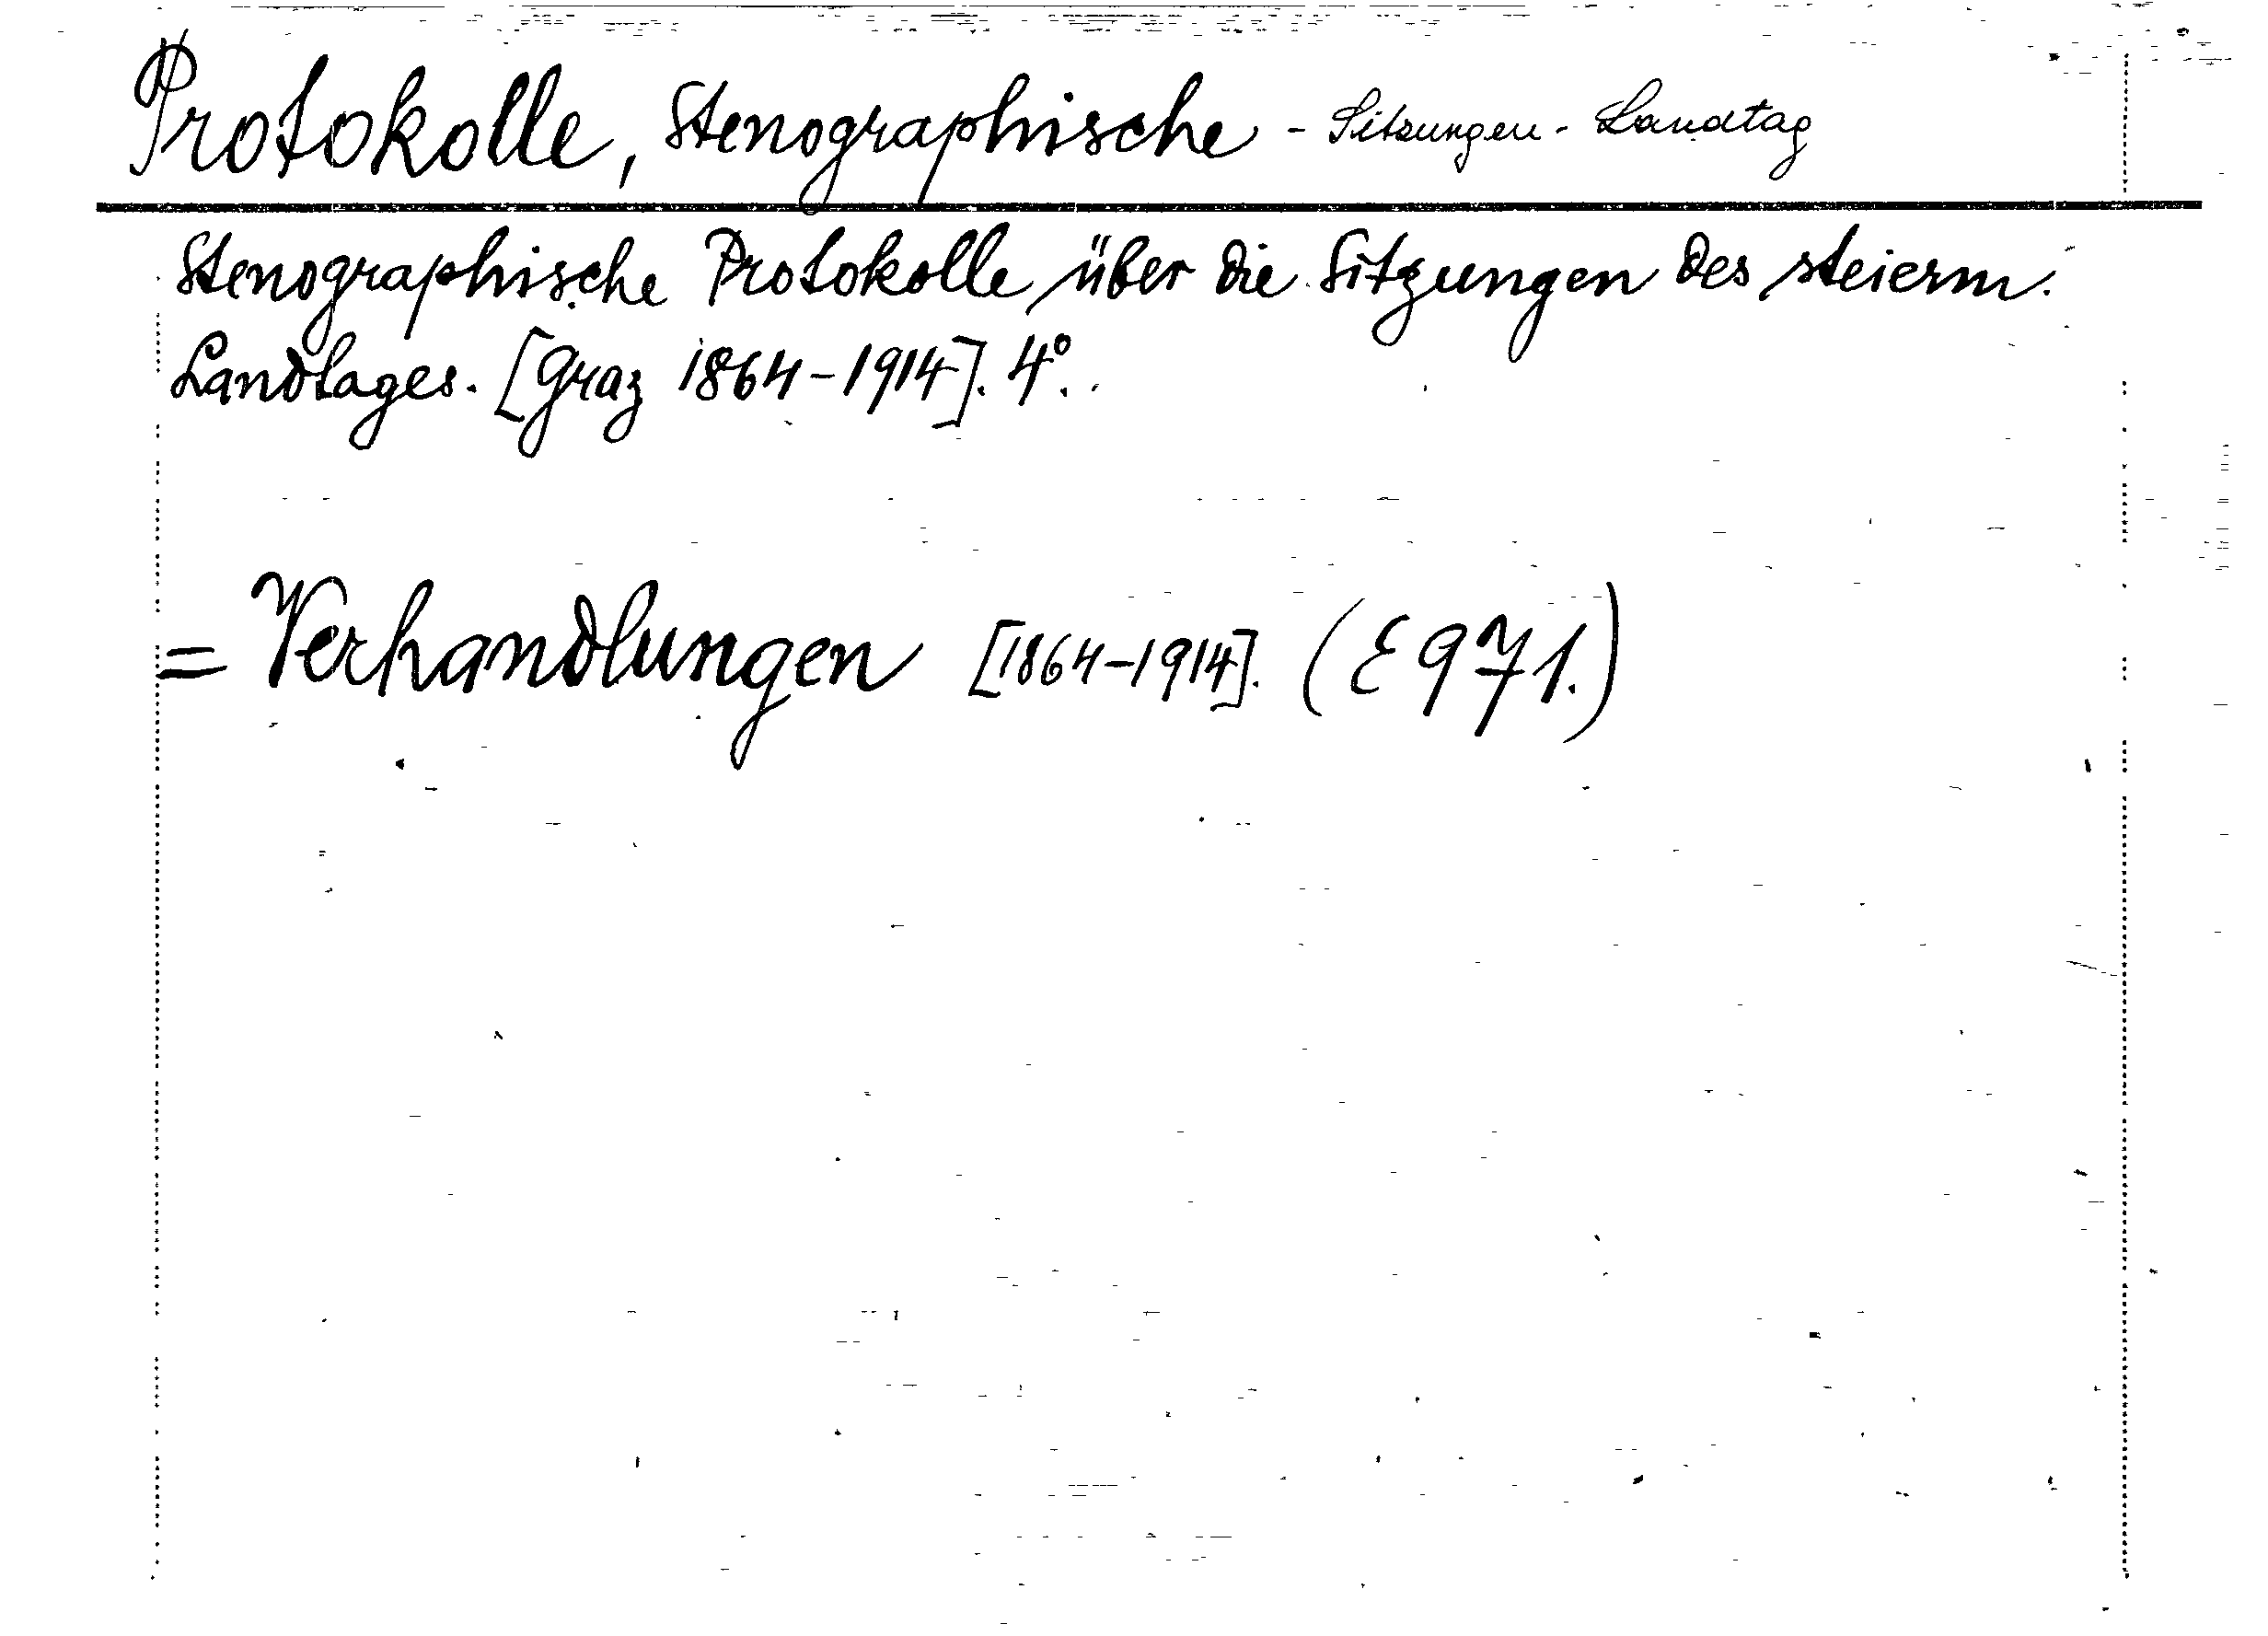 Protokolle, Stenographische - Sitzungen - Landtag
Stenographische Protokolle über die Sitzungen des steierm.
Landtages. [Graz 1864-1914]. 4°.
= Verhandlungen [1864-1914]. (E 971.)